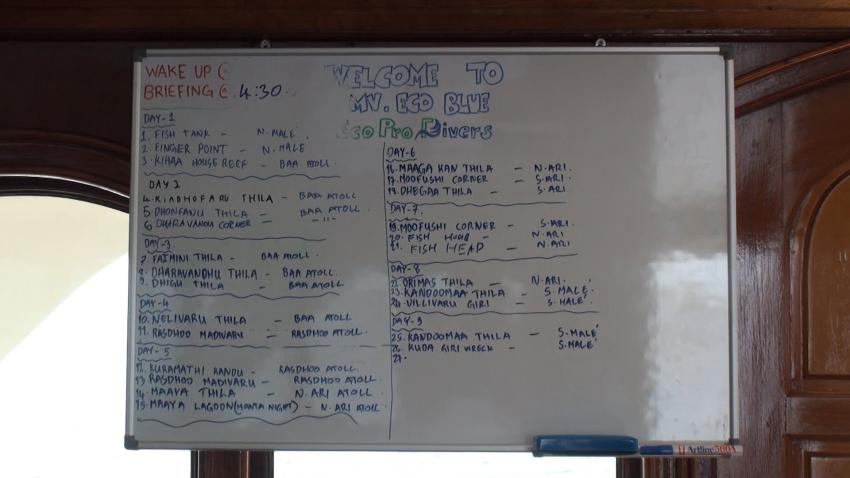 WAKE UP @
BRIEFING @ 4:30
WELCOME TO
MV. ECO BLUE
Eco Pro Divers
DAY-1
1. FISH TANK - N.MALE'
2. FINGER POINT - N.MALE
3. KIHAA HOUSE REEF - BAA ATOLL.
DAY 2
4. KIADHOFARU THILA - BAA ATOLL
5. DHONFANU THILA - BAA ATOLL.
6. DHARAVANDU CORNER - -11-
DAY-3
7. FAIMINI THILA - BAA ATOLL.
8. DHARAVANDHU THILA - BAA ATOLL.
9. DHIGU THILA - BAA ATOLL
DAY-4
10. NELIVARU THILA - BAA ATOLL
11. RASDHOO MADIVARU - RASDHOO ATOLL.
DAY-5
12. KURAMATHI KANDU - RASDHOO ATOLL.
13. RASDHOO MADIVARU - RASDHOO ATOLL.
14. MAAYA THILA - N.ARI ATOLL
15. MAAYA LAGOON (MANTA NIGHT) - N.ARI ATOLL
DAY-6
16. MAAGA KAN THILA - N.ARI.
17. MOOFUSHI CORNER - S.ARI.
18. DHEGAA THILA - S.ARI
DAY-7.
19. MOOFUSHI CORNER - S.ARI.
20. FISH HEAD - N.ARI
21. FISH HEAD - N.ARI
DAY-8
22. ORIMAS THILA - N.ARI.
23. KANDOOMAA THILA - S.MALE'
24. VILLIVARU GIRI - S.MALE'
DAY-9
25. KANDOOMAA THILA - S.MALE'
26. KUDA GIRI WRECK - S.MALE'
27.
Artline 500A